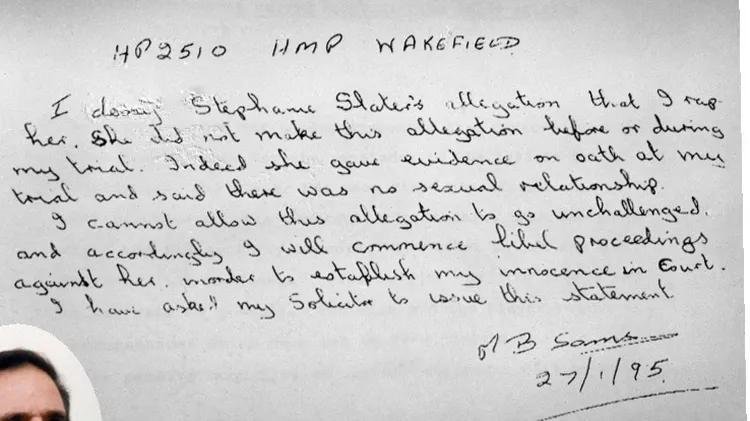 HP2510 HMP WAKEFIELD
I deny Stephanie Slater's allegation that I rap
her. She did not make this allegation before or during
my trial. Indeed she gave evidence on oath at my
trial and said there was no sexual relationship.
I cannot allow this allegation to go unchallenged.
and accordingly I will commence libel proceedings
against her. inorder to establish my innocence in Court.
I have asked my Solicitor to issue this statement
B Sams
27/1/95